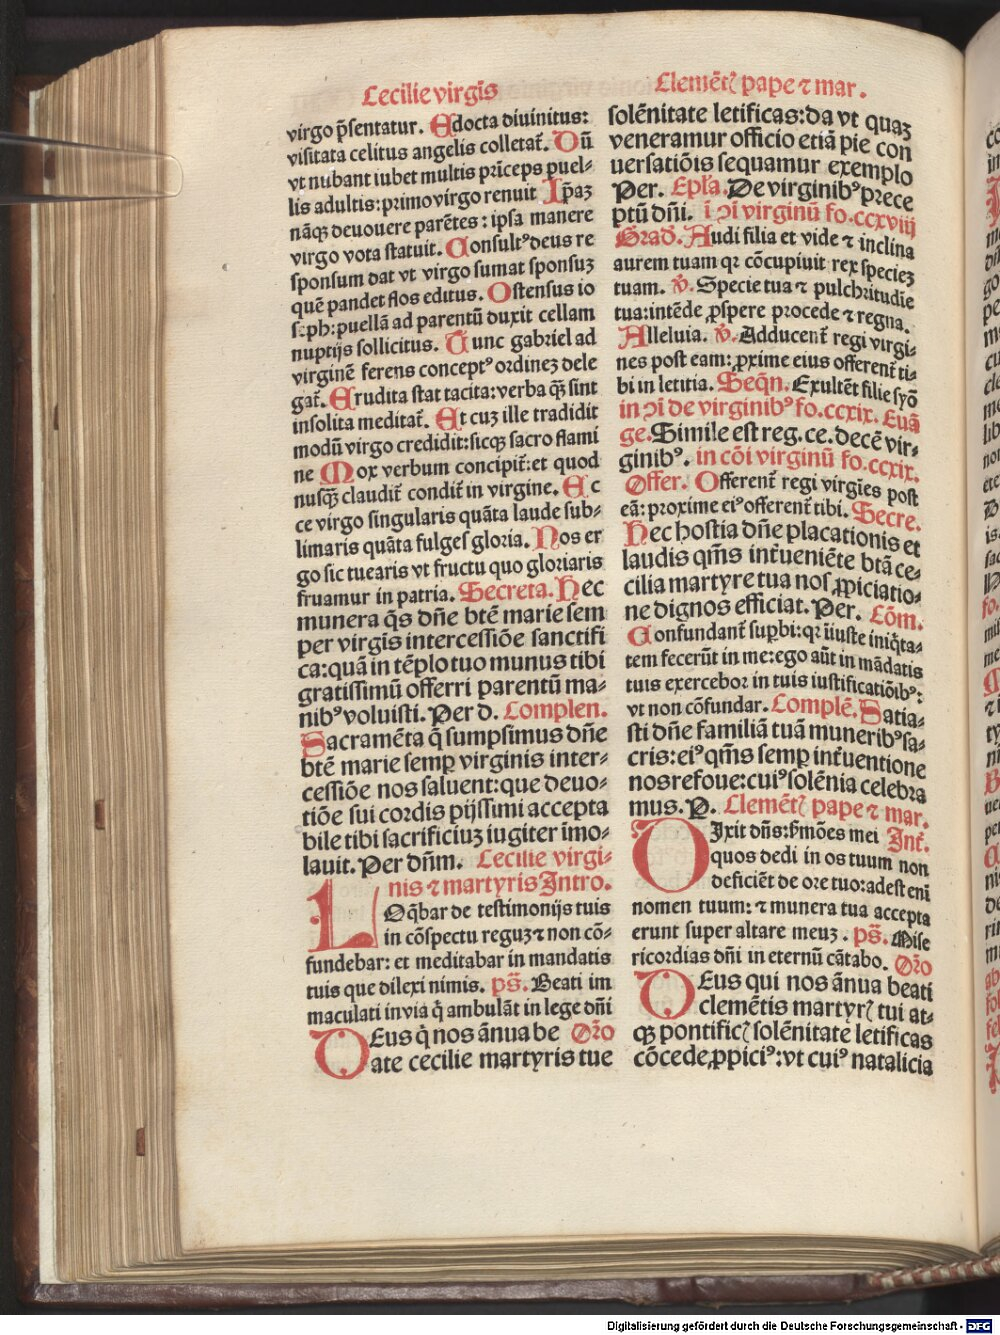 Cecilie virgīs
virgo p̄sentatur. Edocta diuinitus:
visitata celitus angelis colletat᷑. Dū
vt nubant iubet multis prīceps puel⸗
lis adultis: primo virgo renuit Ip̄aꝫ
nāqꝫ deuouere parētes: ipsa manere
virgo vota statuit. Consultꝰ deus re
sponsum dat vt virgo sumat sponsuꝫ
quē pandet flos editus. Ostensus io
seph: puellā ad parentū duxit cellam
nuptijs sollicitus. Tunc gabriel ad
virginē ferens conceptꝰ ordineꝫ dele
gat᷑. Erudita stat tacita: verba q̄ sint
insolita meditat᷑. Et cuꝫ ille tradidit
modū virgo credidit: sicqꝫ sacro flami
ne Mox verbum concipit᷑: et quod
nusqꝫ claudit᷑ condit᷑ in virgine. Ec
ce virgo singularis quāta laude sub⸗
limaris quāta fulges gloria. Nos er
go sic tuearis vt fructu quo gloriaris
fruamur in patria. Secreta. Hec
munera q̄s dn̄e btē marie sem
per virgīs intercessiōe sanctifi
ca: quā in tēplo tuo munus tibi
gratissimū offerri parentū ma⸗
nibꝰ voluisti. Per d. Complen.
Sacramēta q̄ sumpsimus dn̄e
btē marie semꝑ virginis inter⸗
cessiōe nos saluent: que deuo⸗
tiōe sui cordis pijssimi accepta
bile tibi sacrificiuꝫ iugiter īmo⸗
lauit. Per dn̄m. Cecilie virgi⸗
nis ⁊ martyris Intro.
LOq̄bar de testimonijs tuis
in cōspectu reguꝫ ⁊ non cō⸗
fundebar: et meditabar in mandatis
tuis que dilexi nimis. ps̄. Beati im
maculati in via q̄ ambulāt in lege dn̄i
DEus q̄ nos ānua be Or̄o
ate cecilie martyris tue
Clemētꝭ pape ⁊ mar.
solēnitate letificas: da vt quaꝫ
veneramur officio etiā pie con
uersatiōis sequamur exemplo
Per. Epl̄a. De virginibꝰ prece
ptū dn̄i. ī ꝯi virginū fo. ccxviij
Grad. Audi filia et vide ⁊ inclina
aurem tuam qꝛ cōcupiuit rex specieꝫ
tuam. v̄. Specie tua ⁊ pulchritudie
tua: intēde ꝓspere procede ⁊ regna.
Alleluia. v̄. Adducent᷑ regi virgi⸗
nes post eam: ꝓxime eius offerent᷑ ti⸗
bi in letitia. Seqn̄. Exultēt filie syō
in ꝯi de virginibꝰ fo. ccxix. Euā
ge. Simile est reg. ce. decē vir⸗
ginibꝰ. in cōi virginū fo. ccxix.
Offer. Offerent᷑ regi virgīes post
eā: proxime eiꝰ offerent᷑ tibi. Secre.
Hec hostia dn̄e placationis et
laudis qm̄s int᷑ueniēte btā ce⸗
cilia martyre tua nos ꝓpiciatio⸗
ne dignos efficiat. Per. Cōm.
Confundant᷑ suꝑbi: qꝛ iīuste iniq̄ta⸗
tem fecerūt in me: ego aūt in mādatis
tuis exercebor in tuis iustificatiōibꝰ:
vt non cōfundar. Complē. Satia⸗
sti dn̄e familiā tuā muneribꝰ sa⸗
cris: eiꝰ qm̄s semꝑ int᷑uentione
nos refoue: cuiꝰ solēnia celebra
mus. P. Clemētꝭ pape ⁊ mar.
DIxit dn̄s: s̄mōes mei Int᷑.
quos dedi in os tuum non
deficiēt de ore tuo: adest eni
nomen tuum: ⁊ munera tua accepta
erunt super altare meuꝫ. ps̄. Mise
ricordias dn̄i in eternū cātabo. Or̄o
DEus qui nos ānua beati
clemētis martyrꝭ tui at⸗
qꝫ pontificꝭ solēnitate letificas
cōcede ꝓpiciꝰ: vt cuiꝰ natalicia
Digitalisierung gefördert durch die Deutsche Forschungsgemeinschaft - DFG